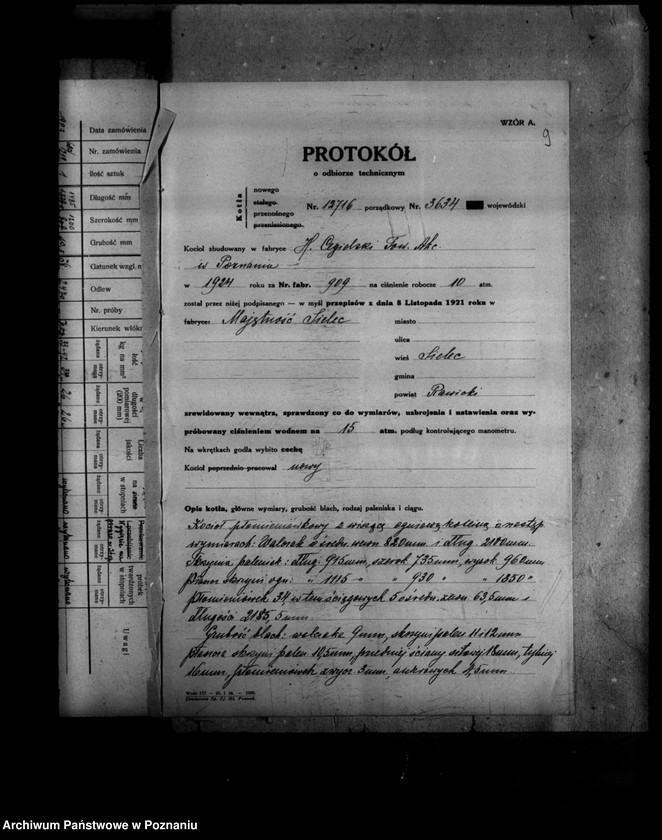 WZÓR A.
9
PROTOKÓŁ
o odbiorze technicznym
Kotła
nowego
stałego
przenośnego
przeniesionego.
Nr. 12716 porządkowy Nr. 3634 wojewódzki
Kocioł zbudowany w fabryce H. Cegielski Tow. Akc.
w Poznaniu
w 1924 roku za Nr. fabr. 909 na ciśnienie robocze 10 atm.
został przez niżej podpisanego — w myśl przepisów z dnia 8 Listopada 1921 roku w
fabryce: Majętność Sielec
miasto
ulica
wieś Sielec
gmina
powiat Rawicki
zrewidowany wewnątrz, sprawdzony co do wymiarów, uzbrojenia i ustawienia oraz wy-
próbowany ciśnieniem wodnem na 15 atm. podług kontrolującego manometru.
Na wkrętkach godła wybito cechę
Kocioł poprzednio pracował nowy
Opis kotła, główne wymiary, grubość blach, rodzaj paleniska i ciągu.
Kocioł płomieniówkowy z wiszącą ogniową
wymiarach: Walczak o średn. wewn 820mm i dług. 2100mm.
Skrzynia palenisk: dług. 915mm, szerok 735mm, wysok 960mm
Płaszcz skrzyni ogn: " 1115 " " 930 " " 1350 "
Płomieniówek 34, w tem ściągowych 5 o średn. zewn 63,5mm i
długości 2185,5mm
Grubość blach: walczaka 9mm, skrzyni palen 11 i 12mm
płaszcz skrzyni palen 10,5mm, przedniej ściany sitowej 18mm, tylnej
16mm, płomieniówek zwycz 3mm, ankrowych 4,5mm
Data zamówienia
Nr. zamówienia
Ilość sztuk
Długość mm
Szerokość mm
Grubość mm
Gatunek wzgl. n
Odlew
Nr. próby
Kierunek włókn
Uwagi
Archiwum Państwowe w Poznaniu